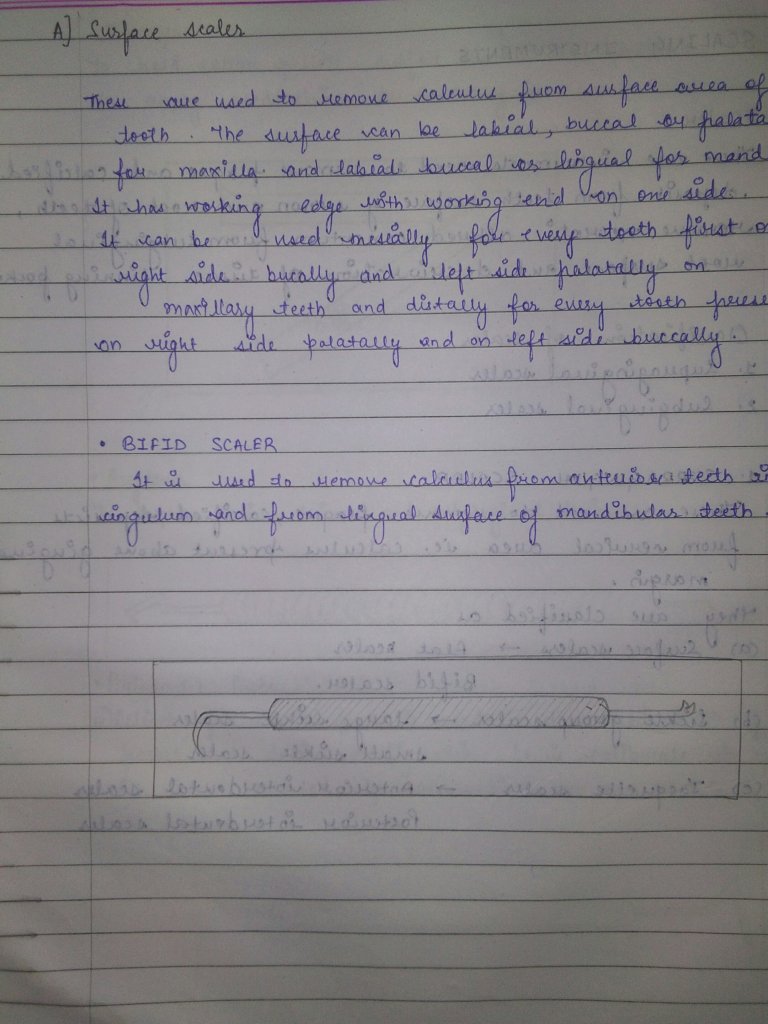 A] Surface scaler
These are used to remove calculus from surface area of
tooth. The surface can be labial, buccal or palata
for maxilla and labial buccal or lingual for mand
It has working edge with working end on one side.
It can be used mesially for every tooth first o
right side bucally and left side palatally on
maxillary teeth and distally for every tooth prese
on right side palatally and on left side buccally.
• BIFID SCALER
It is used to remove calculus from anterior teeth i
cingulum and from lingual surface of mandibular teeth.